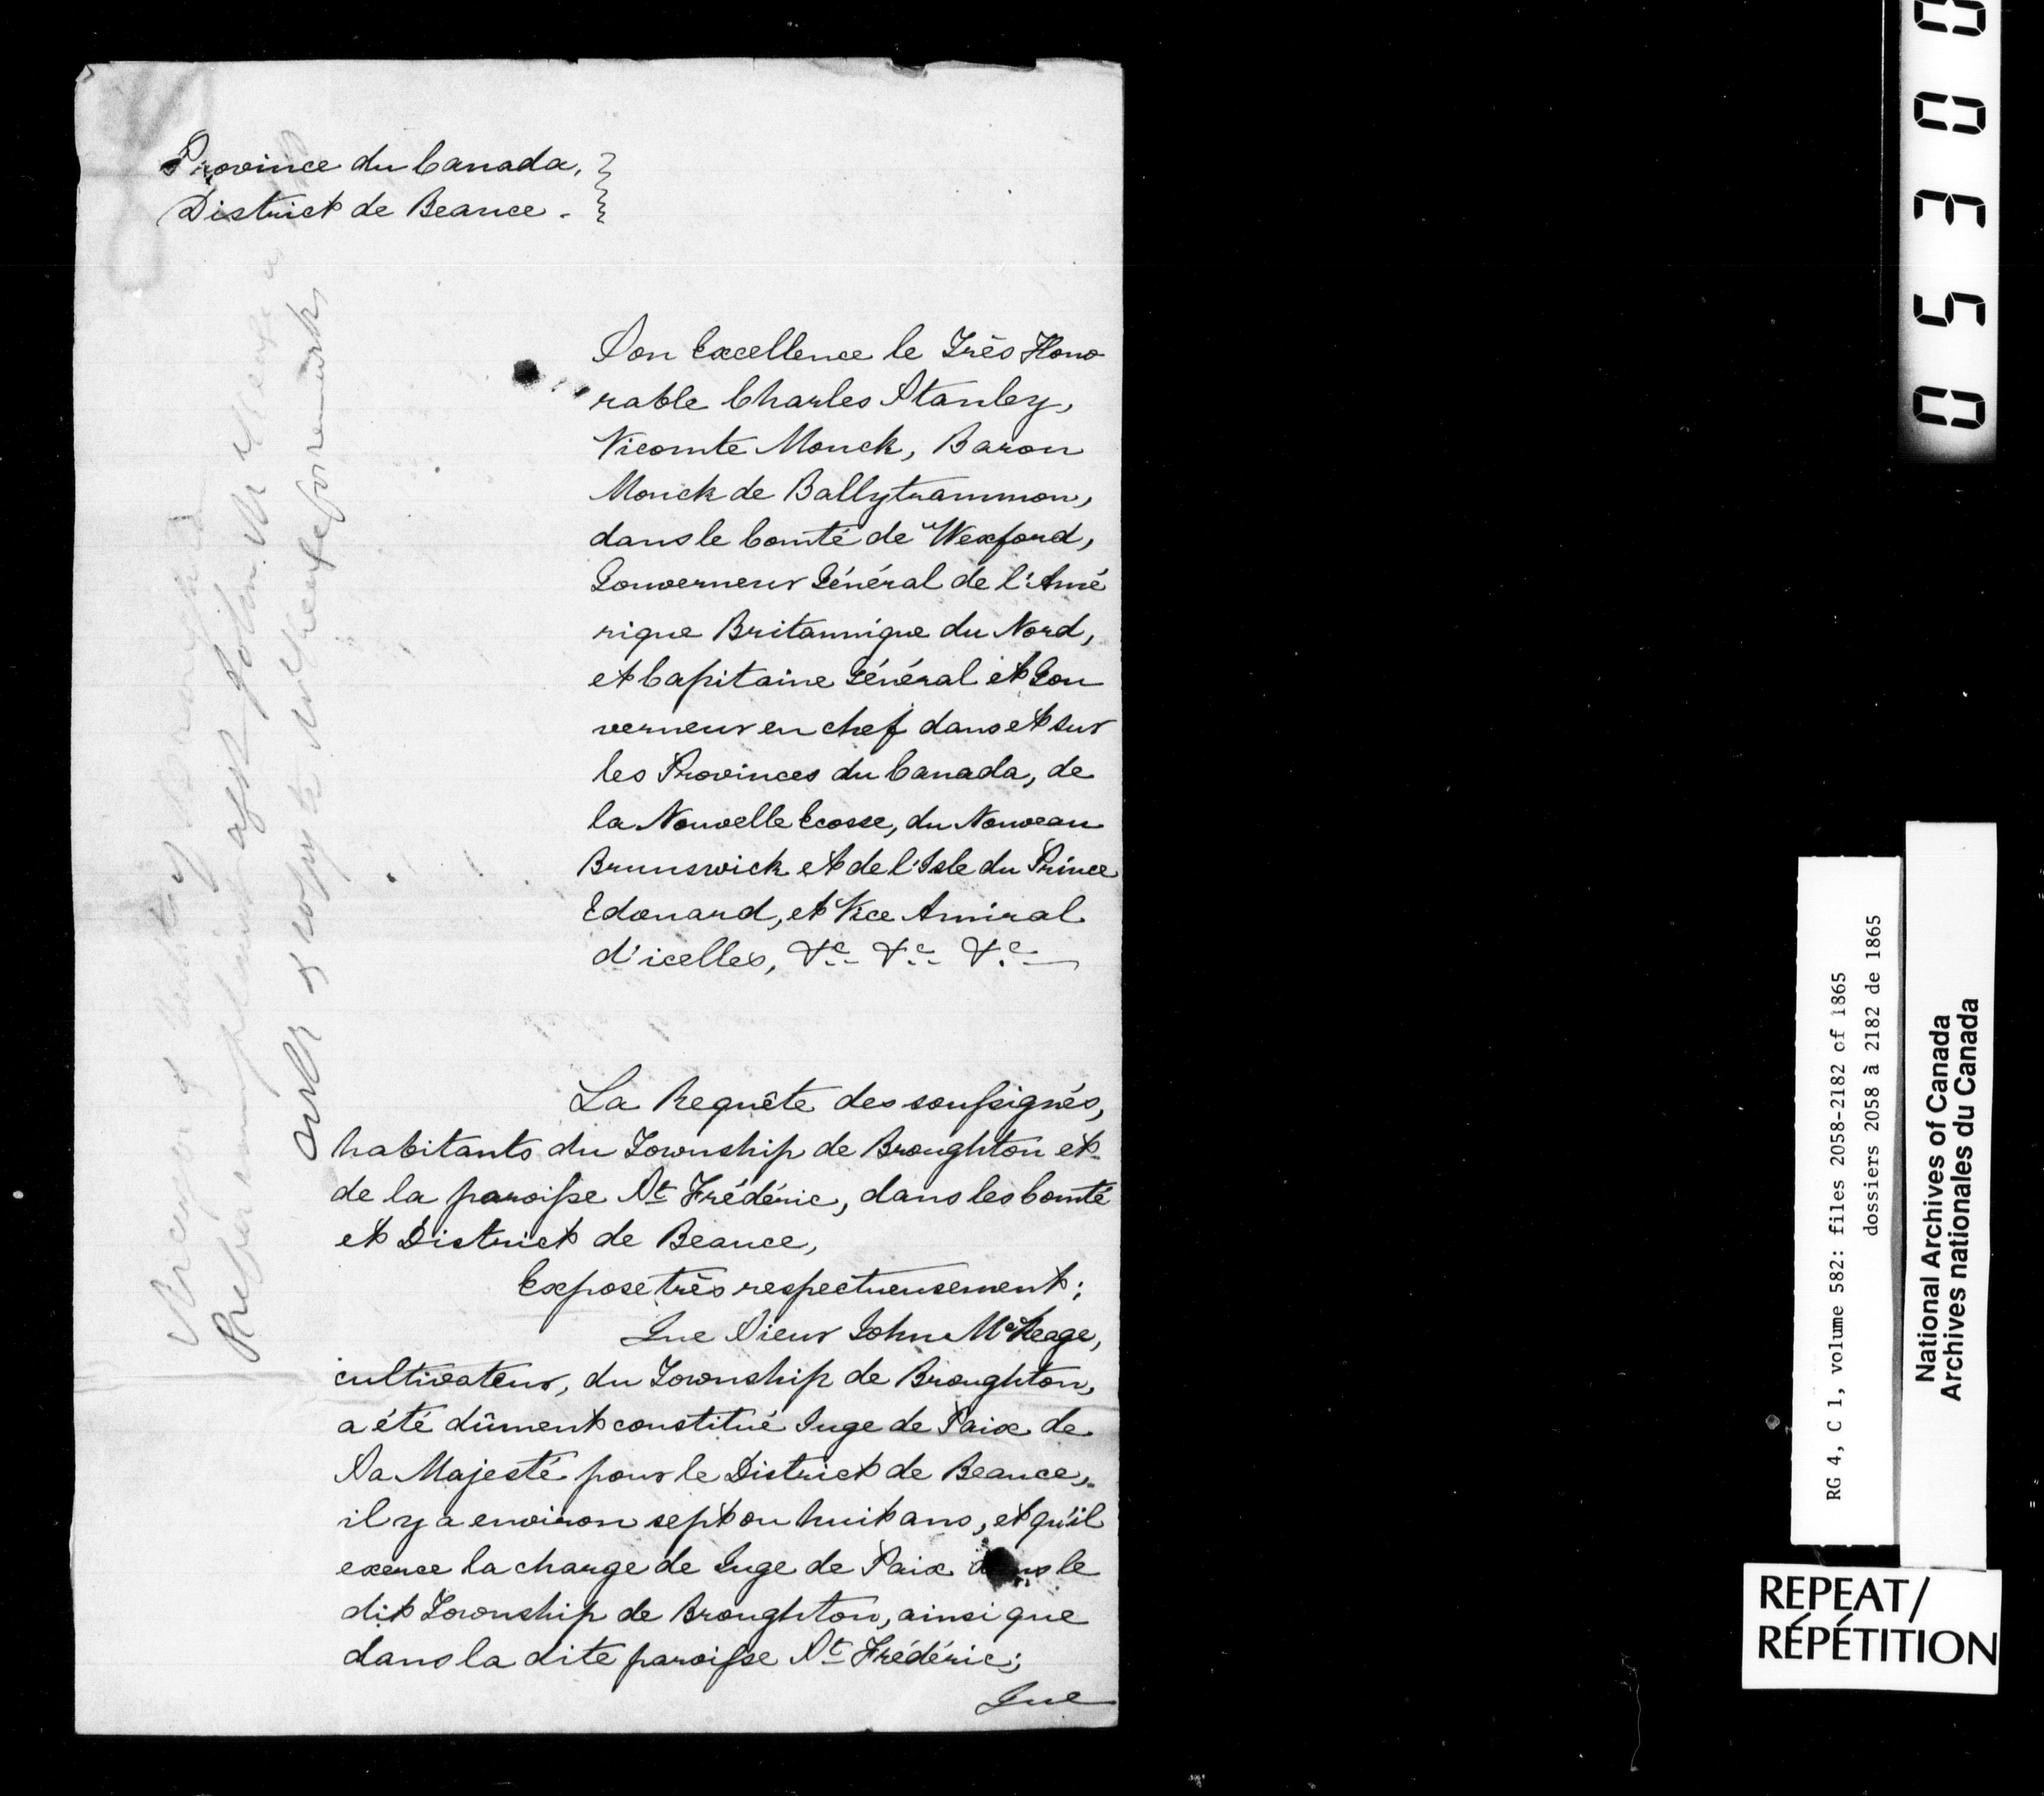 Province du Canada,
District de Beauce.
Son Excellence le Très Hono
rable Charles Stanley,
Vicomte Monck, Baron
Monck de Ballytrammon,
dans le Comté de Wexford,
Gouverneur Général de l'Amé
rique Britannique du Nord,
et Capitaine Général et Gou
verneur en chef dans et sur
les Provinces du Canada, de
la Nouvelle Ecosse, du Nouveau
Brunswick et de l'Isle du Prince
Edouard, et Vice Amiral
d'icelles, &c &c &c
La Requête des soussignés,
habitants du Township de Broughton et
de la paroisse St Frédéric, dans les Comté
et District de Beauce,
Expose très respectueusement;
Que Sieur John McKeage,
cultivateur, du Township de Broughton,
a été dûment constitué Juge de Paix de
Sa Majesté pour le District de Beauce,
il y a environ sept ou huit ans, et qu'il
exerce la charge de Juge de Paix dans le
dit Township de Broughton, ainsi que
dans la dite paroisse St Frédéric;
Que
agst John
for remarks
0 5 3 0 0
RG 4, C 1, volume 582: files 2058-2182 of 1865
dossiers 2058 à 2182 de 1865
National Archives of Canada
Archives nationales du Canada
REPEAT/
RÉPÉTITION